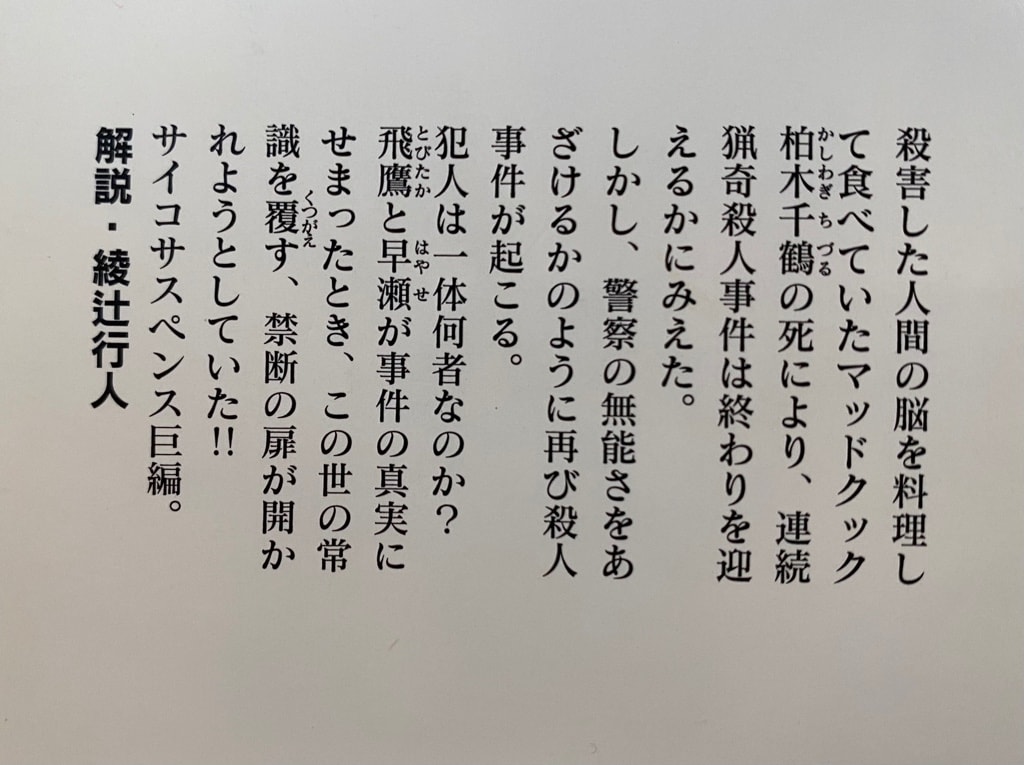 殺害した人間の脳を料理し
て食べていたマッドクック
柏木千鶴の死により、連続
猟奇殺人事件は終わりを迎
えるかにみえた。
しかし、警察の無能さをあ
ざけるかのように再び殺人
事件が起こる。
犯人は一体何者なのか？
飛鷹と早瀬が事件の真実に
せまったとき、この世の常
識を覆す、禁断の扉が開か
れようとしていた!!
サイコサスペンス巨編。
解説・綾辻行人
かしわぎ ちづる
とびたか
はやせ
くつがえ